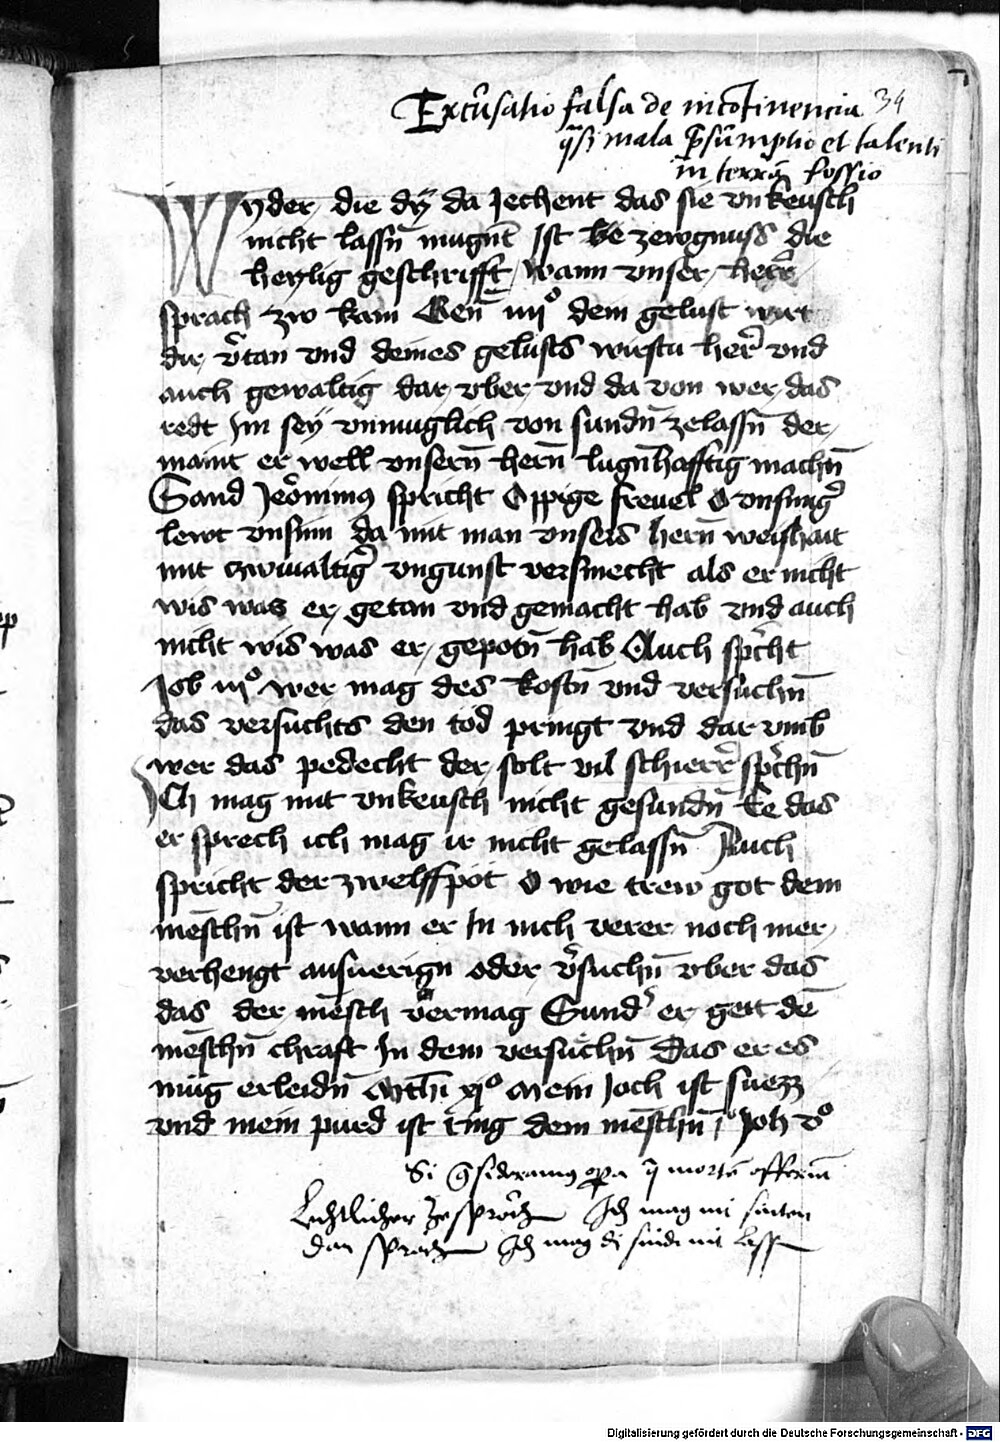 Excusatio falsa de incotinencia 34
qsi mala psumptio et talenti
in terrā fossio
Wyder die dÿ da Jechent das sie vnkeusch
nicht lassn̄ mugnt Ist be zewgnuss die
heylig geschrifft wann vnser herr
sprach zw kaim Gen̄ iiijº dem gelust wirt
dir v̄tan vnd deines gelusts wirstu her̄ vnd
auch gewaltig dar vber vnd da von wer das
redt Im seÿ vnmuglich von sundn̄ zelassn̄ der
maint er well vnsern̄ hern̄ lugn̄hafftig machn̄
Sand Jeronimus spricht O ppige frevel O vnsiniḡ
lewt vnsinn da mit man vnsers hern̄ weishait
mit zwiualtiḡ vngunst versmecht als er nicht
wis was er getan vnd gemacht hab vnd auch
nicht wis was er gepotn̄ hab Auch sp̄cht
Job iijº wer mag des kostn̄ vnd versuchn̄
das versuchts den tod pringt vnd dar vmb
wer das pedecht der solt vil schierr sp̄chn̄
Ich mag mit vnkeusch nicht gesundn̄ Ee das
er sprech ich mag ir nicht gelassn̄ Auch
spricht der zwelffpot O wie trew got dem
mēschn̄ ist wann er In nich verer noch mer
verhengt ansuerign oder v̄suchn̄ vber das
das der mēsch vermag Sund̄ er geit dē
mēschn̄ chraft In dem versuchn̄ Das er es
mug erleidn̄ Mth̄i xjº Mein Joch ist suezz
vnd mein purd ist ring dem mēschn̄ jº Joh vº
Si
Ich mag nit
dan sprech Ich mag di sund nit
Digitalisierung gefördert durch die Deutsche Forschungsgemeinschaft - DFG